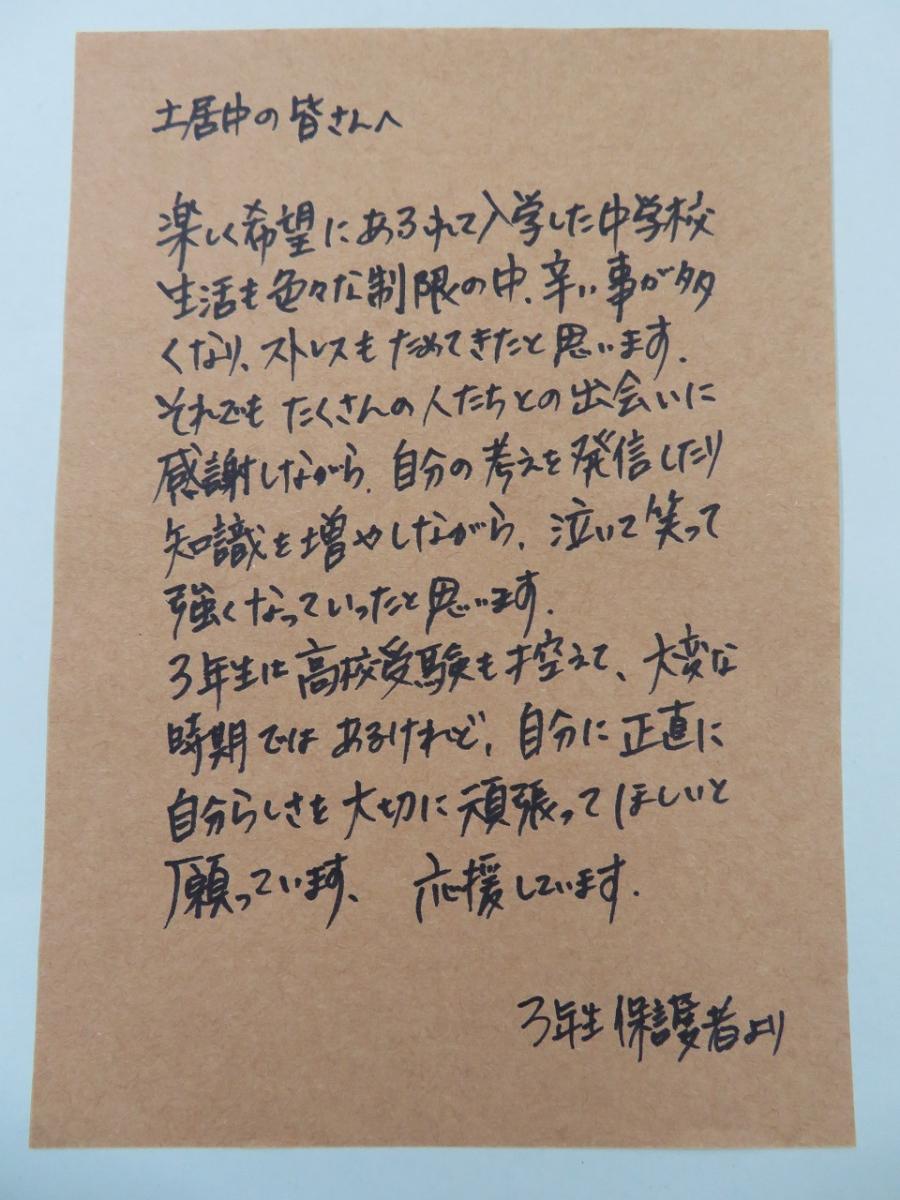 土居中の皆さんへ
楽しく希望にあふれて入学した中学校
生活も色々な制限の中、辛い事が多
くなり、ストレスもためてきたと思います。
それでもたくさんの人たちとの出会いに
感謝しながら、自分の考えを発信したり
知識を増やしながら、泣いて笑って
強くなっていったと思います。
3年生は高校受験も控えて、大変な
時期ではあるけれど、自分に正直に
自分らしさを大切に頑張ってほしいと
願っています、 応援しています。
3年生保護者より